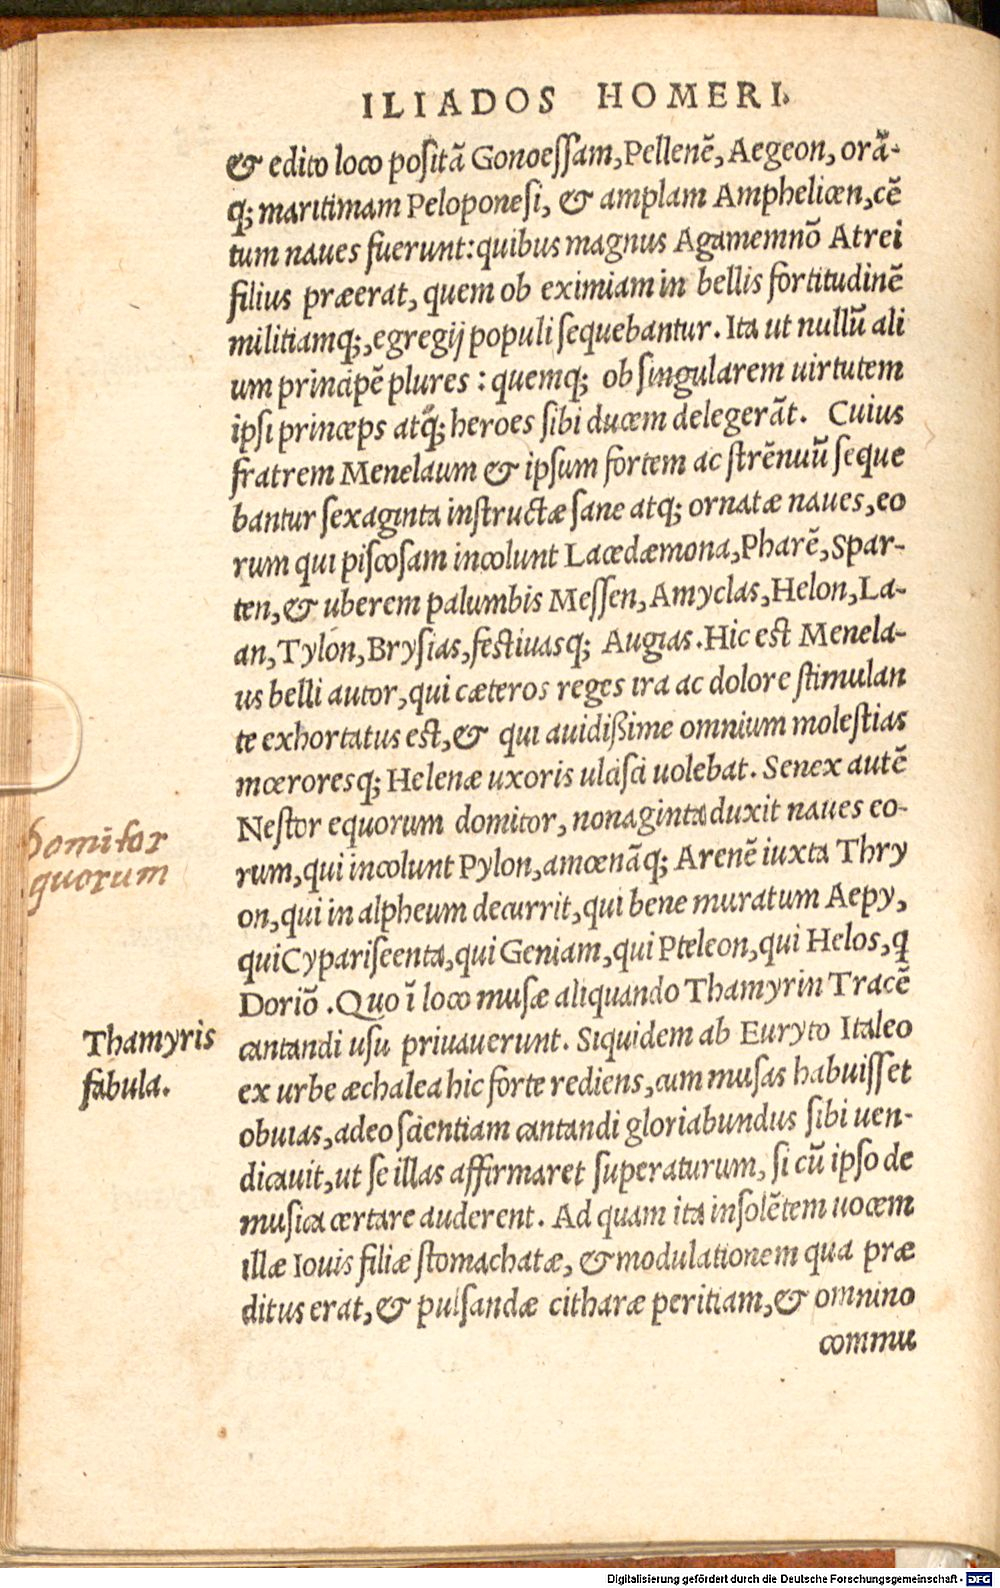 ILIADOS HOMERI.
& edito loco positā Gonoessam, Pellenē, Aegeon, orā-
q; maritimam Peloponesi, & amplam Ampheliœn, cē
tum naues fuerunt: quibus magnus Agamemnō Atrei
filius præerat, quem ob eximiam in bellis fortitudinē
militiamq;, egregij populi sequebantur. Ita ut nullū ali
um principē plures : quemq; ob singularem uirtutem
ipsi princeps atq; heroes sibi ducem delegerāt. Cuius
fratrem Menelaum & ipsum fortem ac strēnuū seque
bantur sexaginta instructæ sane atq; ornatæ naues, eo
rum qui piscosam incolunt Lacedæmona, Pharē, Spar-
ten, & uberem palumbis Messen, Amyclas, Helon, La-
an, Tylon, Brysias, festiuasq; Augias. Hic est Menela-
us belli autor, qui cæteros reges ira ac dolore stimulan
te exhortatus est, & qui auidißime omnium molestias
mœroresq; Helenæ uxoris ulcisci uolebat. Senex autē
Nestor equorum domitor, nonaginta duxit naues eo-
rum, qui incolunt Pylon, amœnāq; Arenē iuxta Thry
on, qui in alpheum decurrit, qui bene muratum Aepy,
qui Cypariseenta, qui Geniam, qui Pteleon, qui Helos, q
Doriō. Quo ī loco musæ aliquando Thamyrin Tracē
cantandi usu priuauerunt. Siquidem ab Euryto Italeo
ex urbe æchalea hic forte rediens, cum musas habuisset
obuias, adeo scientiam cantandi gloriabundus sibi uen-
dicauit, ut se illas affirmaret superaturum, si cū ipso de
musica certare auderent. Ad quam ita insolētem uocem
illæ Iouis filiæ stomachatæ, & modulationem qua præ
ditus erat, & pulsandæ citharæ peritiam, & omnino
commu
Domitor
quorum
Thamyris
fabula.
Digitalisierung gefördert durch die Deutsche Forschungsgemeinschaft - DFG